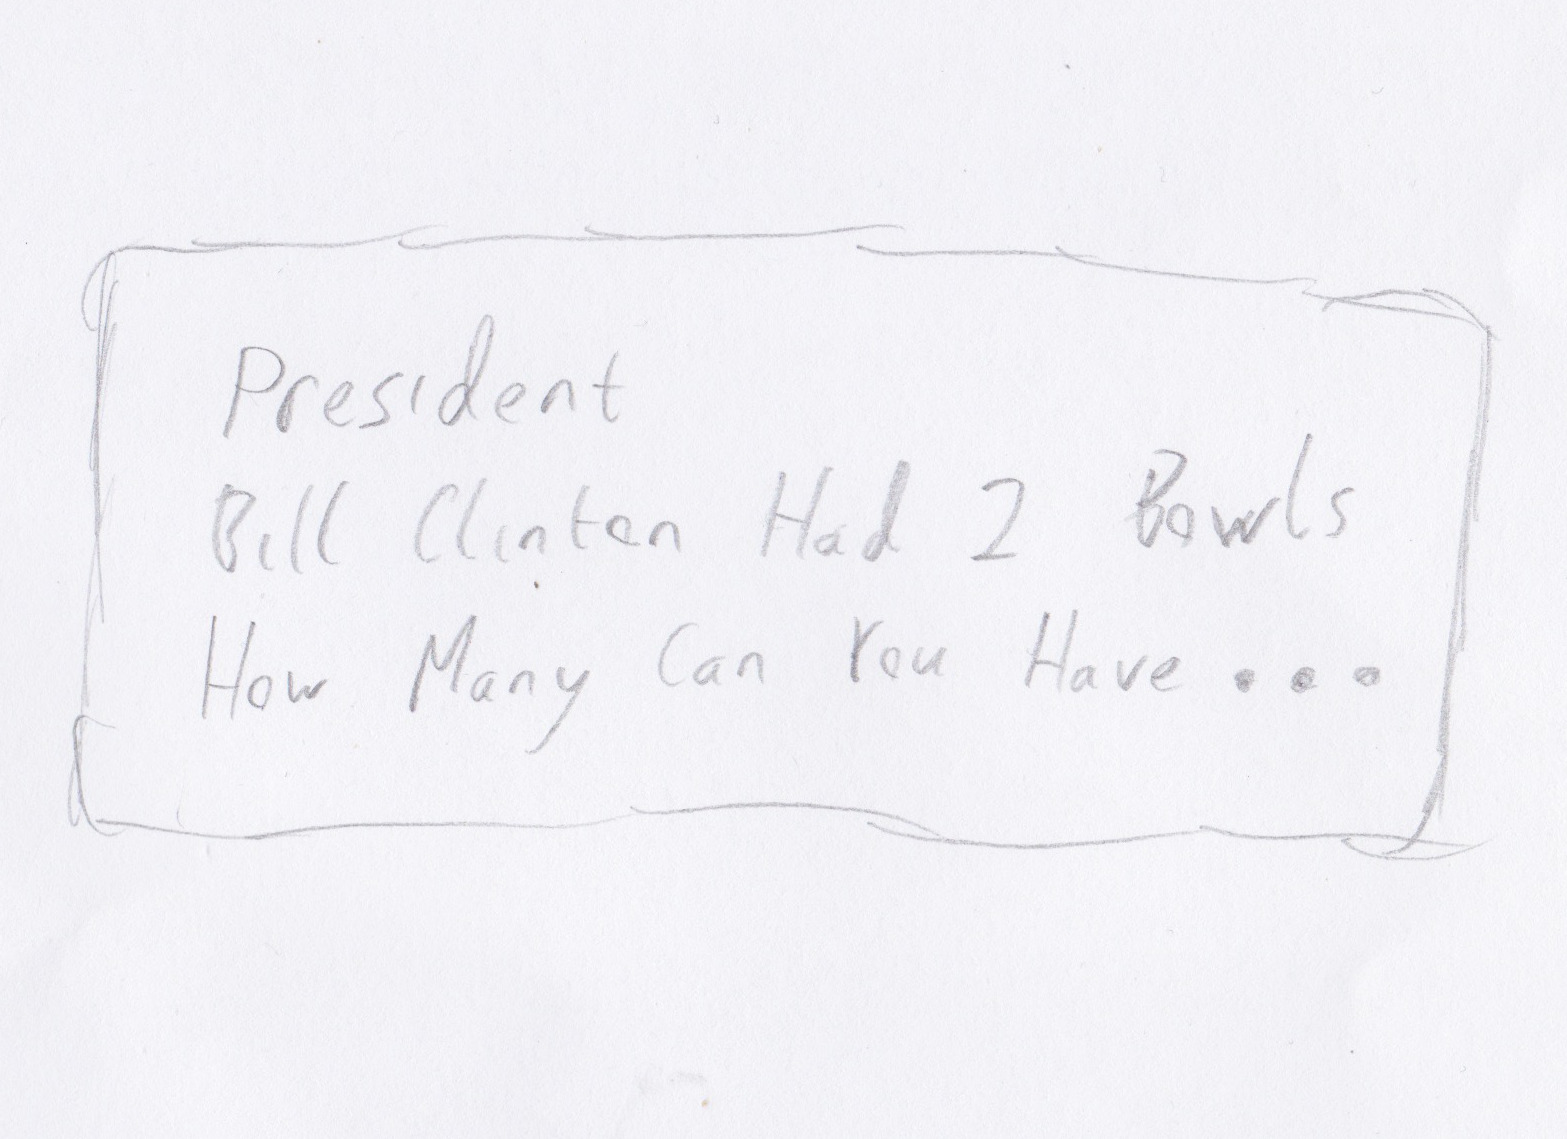 President
Bill Clinton Had 2 Bowls
How Many Can You Have...